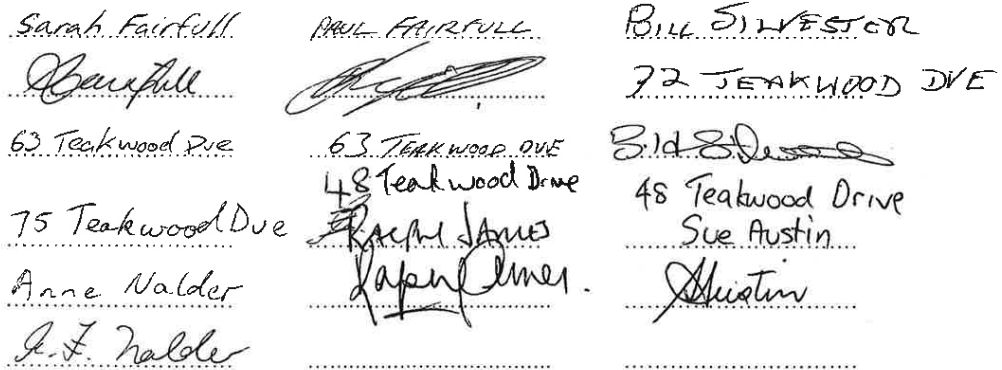 Sarah Fairfull
63 Teakwood Dve
75 Teakwood Dve
Anne Nalder
A. F. Nalder
PAUL FAIRFULL
63 TEAKWOOD DVE
48 Teakwood Drive
RALPH JAMES
Ralph James.
BILL SILVESTER
72 TEAKWOOD DVE
Bill Silvester
48 Teakwood Drive
Sue Austin
SAustin